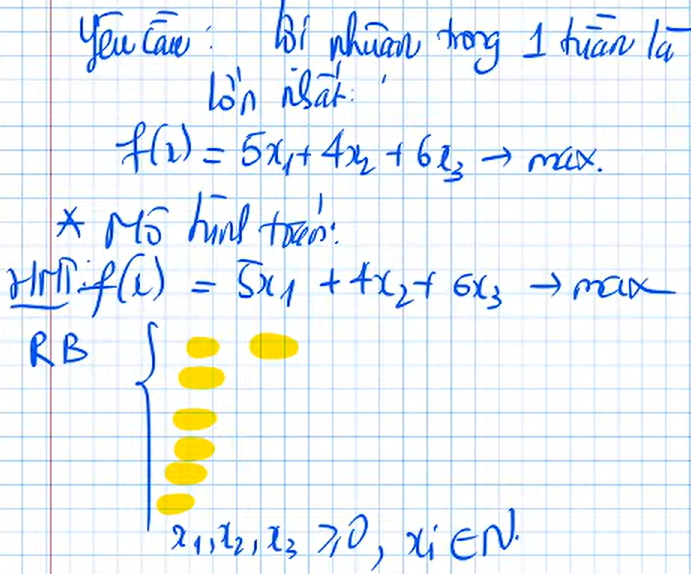 Yêu cầu: lợi nhuận trong 1 tuần là
lớn nhất:
f(x) = 5x₁ + 4x₂ + 6x₃ → max.
* Mô hình toán:
HMT: f(x) = 5x₁ + 4x₂ + 6x₃ → max
RB {
x₁, x₂, x₃ ≥ 0, xi ∈ N.